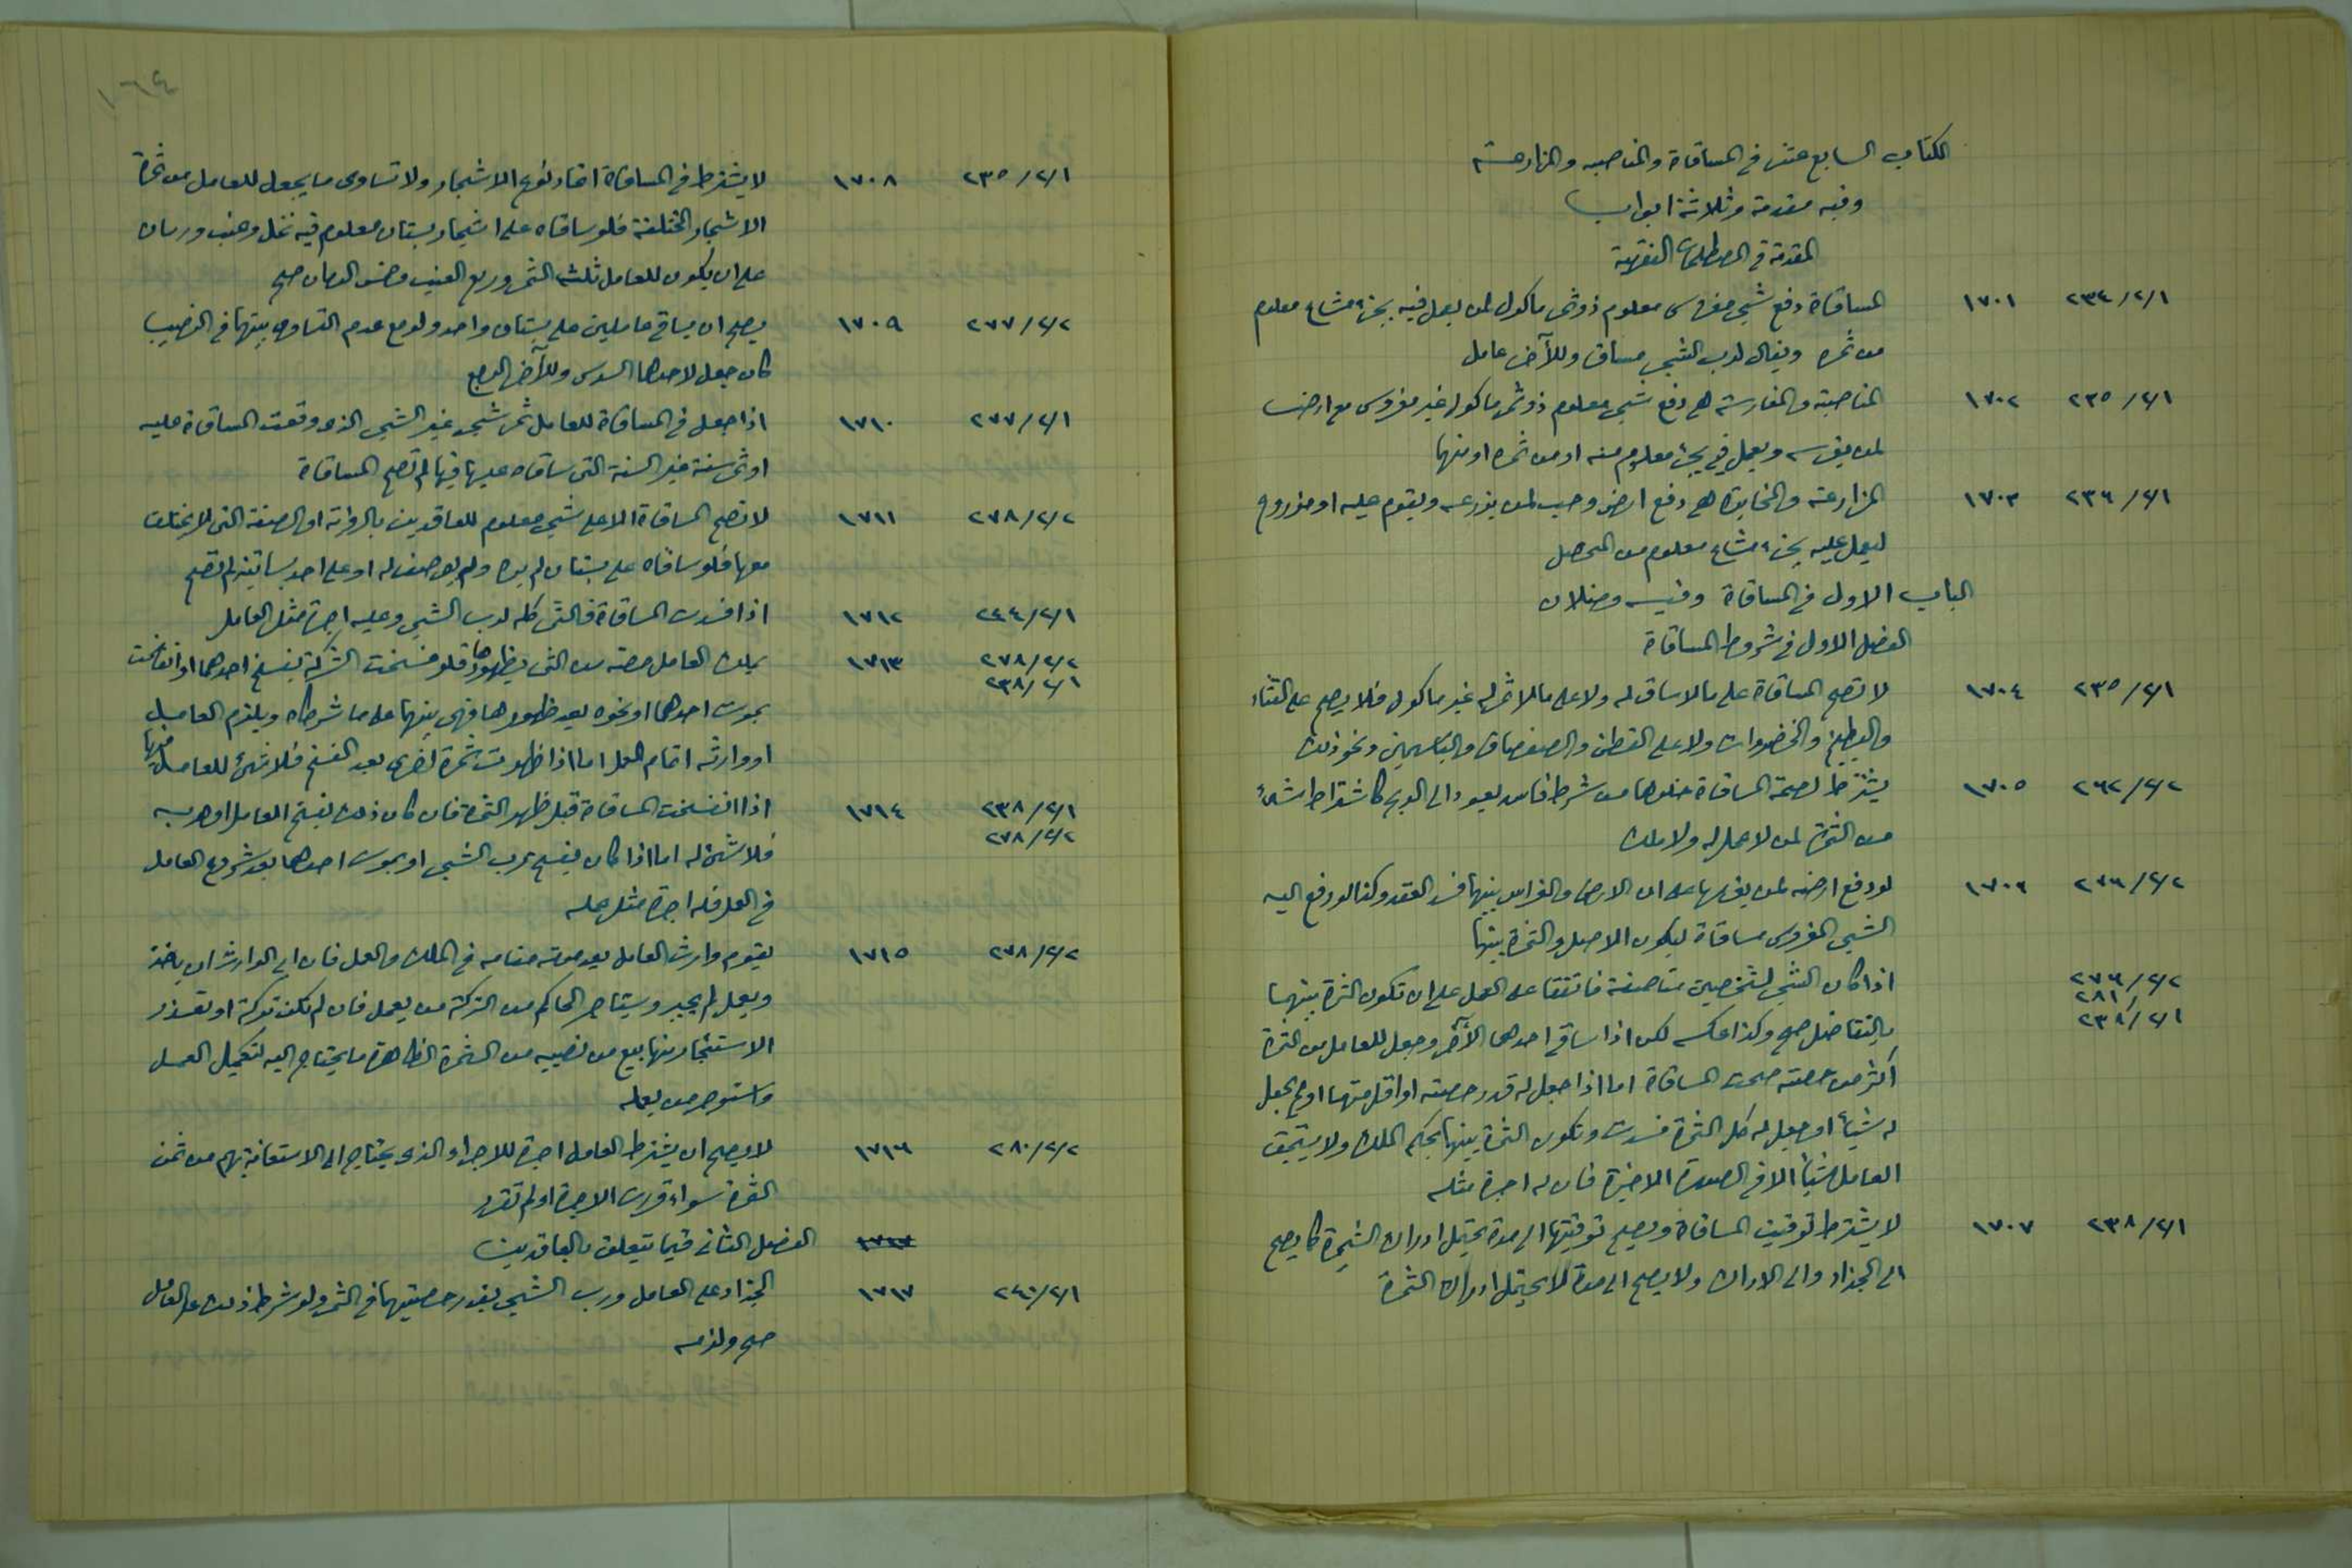 الكتاب السابع عشر في المساقاة والمناصبه والمزارعة
وفيه مقدمة وثلاثة ابواب
المقدمة في المصطلحات الفقهية
٢٣٤/٢/١ ١٧٠١ المساقاة دفع شجر مغروس معلوم ذو ثمر ماكول لمن يعمل فيه بجزء مشاع معلوم
من ثمره ويقال لرب الشجر مساق وللآخر عامل
٢٣٥/٢/١ ١٧٠٢ المناصبة والمغارسة هي دفع شجر معلوم ذو ثمر ماكول غير مغروس مع ارض
لمن يغرسه ويعمل فيه بجزء معلوم منه او من ثمره او منهما
٢٣٦/٢/١ ١٧٠٣ المزارعة والمخابرة هي دفع ارض وحب لمن يزرعه ويقوم عليه او مزروع
ليعمل عليه بجزء مشاع معلوم من المحصل
الباب الاول في المساقاة وفيه فصلان
الفصل الاول في شروط المساقاة
٢٣٥/٢/١ ١٧٠٤ لا تصح المساقاة على ما لا ساق له ولا على ما لا ثمر له غير ماكول فلا يصح على القثاء
والبطيخ والخضروات ولا على القطن والصفصاف والياسمين ونحو ذلك
٢٦٢/٢/٢ ١٧٠٥ يشترط لصحة المساقاة خلوها من شرط فاسد يعود الى الربح كاشتراط شيء
من الثمرة لمن لا عمل له ولا ملك
٢٧٦/٢/٢ ١٧٠٦ لو دفع ارضه لمن يغرسها على ان الارض والغراس بينهما فسد العقد وكذا لو دفع اليه
الشجر المغروس مساقاة ليكون الاصل والثمرة بينهما
٢٧٦/٢/٢ اذا كان الشجر لشخصين مناصفة فاتفقا على العمل على ان تكون الثمرة بينهما
٢٨١/
٢٣٨/٢/١ بالتفاضل صح وكذا عكسه لكن اذا ساقى احدهما الآخر وجعل للعامل من الثمرة
اكثر من حصته صحت المساقاة اما اذا جعل له قدر حصته او اقل منها او لم يجعل
له شيئاً او جعل له كل الثمرة فسدت وتكون الثمرة بينهما بحكم الملك ولا يستحق
العامل شيئاً الا في الصورة الاخيرة فان له اجرة مثله
٢٣٨/٢/١ ١٧٠٧ لا يشترط توقيت المساقاة ويصح توقيتها الى مدة يحتمل ادراك الثمرة كما يصح
الى الجذاذ والى الادراك ولا يصح الى مدة لا يحتمل ادراك الثمرة
١٦٤
٢٣٥/٢/١ ١٧٠٨ لا يشترط في المساقاة اتحاد نوع الاشجار ولا تساوى ما يجعل للعامل من ثمرة
الاشجار المختلفة فلو ساقاه على اشجار بستان معلوم فيه نخل وعنب ورمان
على ان يكون للعامل ثلث الثمر وربع العنب وخمس الرمان صح
٢٧٧/٢/٢ ١٧٠٩ يصح ان يساقي عاملين على بستان واحد ولو مع عدم التساوي بينهما في النصيب
كان جعل لاحدهما السدس وللآخر الربع
٢٧٧/٢/١ ١٧١٠ اذا جعل في المساقاة للعامل ثمر شجر غير الشجر الذي وقعت المساقاة عليه
او ثمر سنة غير السنة التي ساقاه عليها فيها لم تصح المساقاة
٢٧٨/٢/٢ ١٧١١ لا تصح المساقاة الا على شجر معلوم للعاقدين بالرؤية او الصفة التي لا يختلف
معها فلو ساقاه على بستان لم يره ولم يوصف له او على احد بساتينه لم تصح
٢٤٤/٢/١ ١٧١٢ اذا فسدت المساقاة فالثمر كله لرب الشجر وعليه اجرة مثل العامل
٢٧٨/٢/٢ ١٧١٣ يملك العامل حصته من الثمر بظهورها فلو فسخت الشركة بفسخ احدهما او انفسخت
٢٣٨/٢/١
بموت احدهما او نحوه بعد ظهورها فهي بينهما على ما شرطاه ويلزم العامل
او وارثه اتمام العمل اما اذا ظهرت ثمرة اخرى بعد الفسخ فلا شيء للعامل فيها
٢٣٨/٢/١ ١٧١٤ اذا انفسخت المساقاة قبل ظهور الثمرة فان كان ذلك بفسخ العامل او هربه
٢٧٨/٢/٢
فلا شيء له اما اذا كان بفسخ رب الشجر او بموت احدهما بعد شروع العامل
في العمل فله اجرة مثل عمله
٢٧٨/٢/٢ ١٧١٥ يقوم وارث العامل بعد موته مقامه في الملك والعمل فان ابى الوارث ان ياخذ
ويعمل لم يجبر ويستاجر الحاكم من التركة من يعمل فان لم تكن تركة او تعذر
الاستئجار منها بيع من نصيبه من الثمرة الظاهرة ما يحتاج اليه لتكميل العمل
واستؤجر من يعمله
٢٨٠/٢/٢ ١٧١٦ لا يصح ان يشترط العامل اجرة للاجراء الذي يحتاج الى الاستعانة بهم من ثمن
الثمرة سواء قدرت الاجرة او لم تقدر
١٧١٧ الفصل الثاني فيما يتعلق بالعاقدين
٢٤٠/٢/١ ١٧١٧ الجذاذ على العامل ورب الشجر بقدر حصتيهما في الثمر ولو شرط ذلك على العامل
صح ولزمه